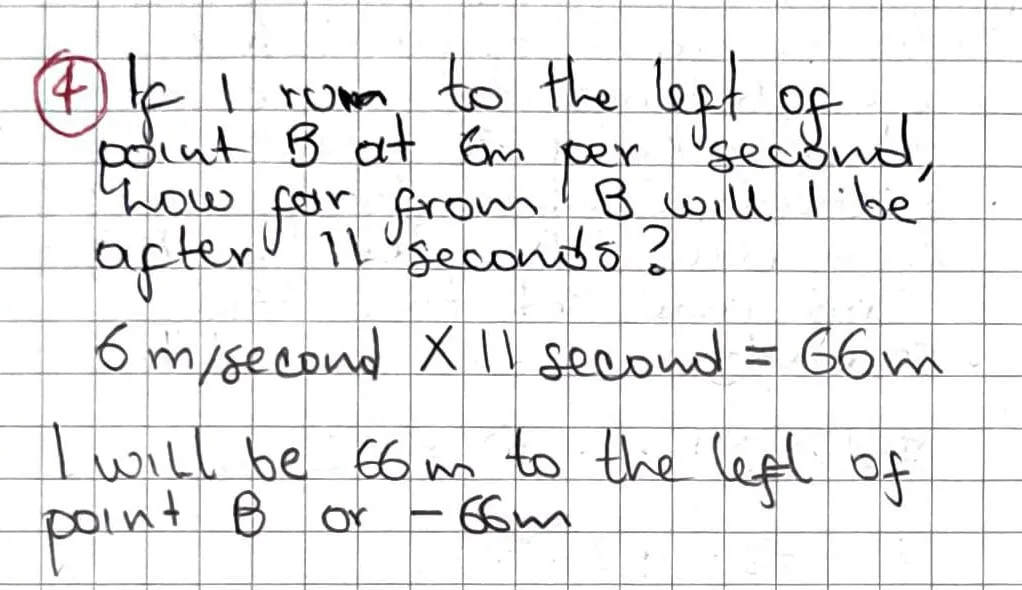 4 If I run to the left of
point B at 6m per second,
how far from B will I be
after 11 seconds?
6 m/second X 11 second = 66m
I will be 66 m to the left of
point B or - 66m